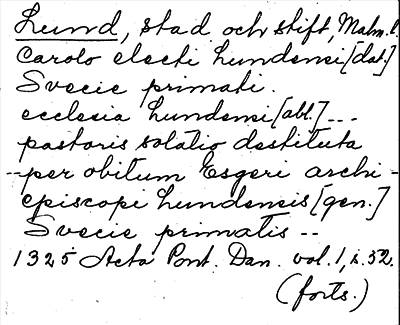 Lund, stad och stift, Malm. l.
Carolo electi Lundensi [dat.]
Svecie primati.
ecclesia Lundensi [abl.] ---
pastoris solatio destituta
-- per obitum Esgeri archi-
episcopi Lundensis [gen.]
Svecie primatis --
1325 Acta Pont. Dan. vol. 1, s. 52.
(forts.)